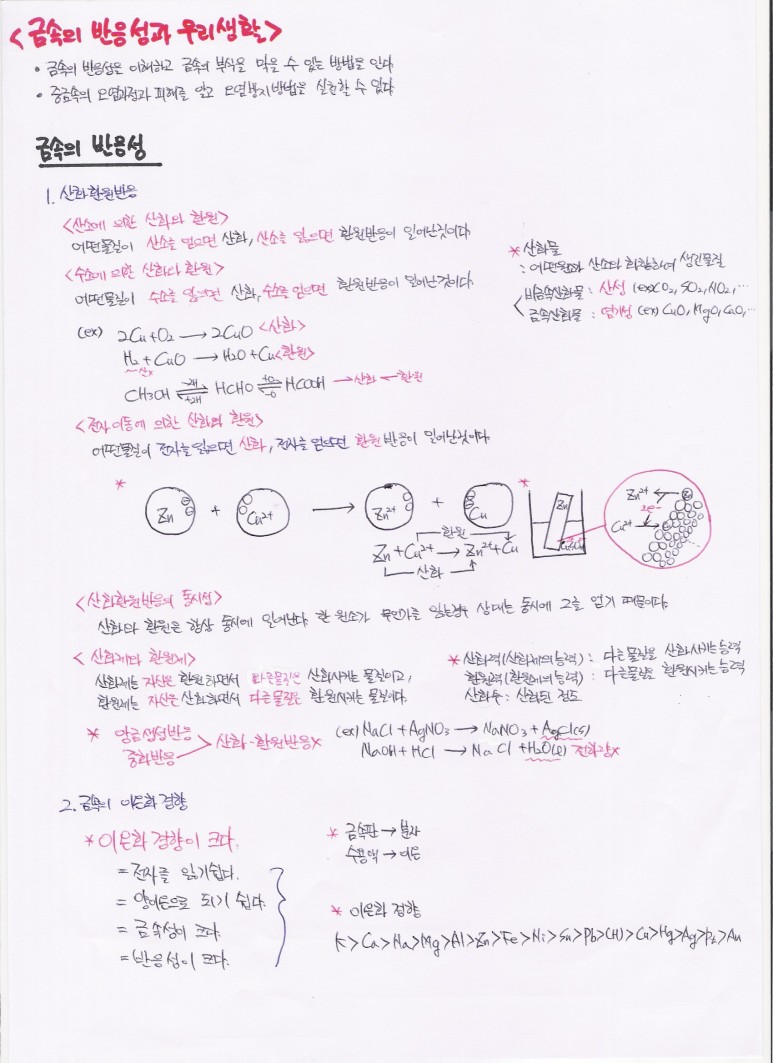 <금속의 반응성과 우리생활>
• 금속의 반응성을 이해하고 금속의 부식을 막을 수 있는 방법을 안다
• 중금속의 오염과정과 피해를 알고 오염방지방법을 실천할 수 있다
금속의 반응성
1. 산화환원반응
<산소에 의한 산화와 환원>
어떤물질이 산소를 얻으면 산화, 산소를 잃으면 환원반응이 일어난것이다
<수소에 의한 산화와 환원>
어떤물질이 수소를 잃으면 산화, 수소를 얻으면 환원반응이 일어난것이다.
* 산화물
: 어떤원소와 산소와 화합하여 생긴물질
비금속산화물 : 산성 (ex)CO2, SO2, NO2, …
금속산화물 : 염기성 (ex) CuO, MgO, CaO, …
(ex) 2Cu+O2 → 2CuO <산화>
H2 + CuO → H2O + Cu <환원>
산x
CH3OH -2H +2H HCHO +O -O HCOOH → 산화 ← 환원
<전자이동에 의한 산화와 환원>
어떤물질이 전자를 잃으면 산화, 전자를 얻으면 환원 반응이 일어난것이다.
* Zn + Cu2+ → Zn2+ + Cu
* Zn Cu2+ Cu
Zn2+ ← Zn
2e-
Cu2+ →
환원
Zn + Cu2+ → Zn2+ + Cu
산화
<산화환원반응의 동시성>
산화와 환원은 항상 동시에 일어난다. 한 원소가 무언가를 잃는경우 상대는 동시에 그를 얻기 때문이다.
<산화제와 환원제>
산화제는 자신은 환원하면서 다른물질은 산화시키는 물질이고,
환원제는 자신은 산화하면서 다른물질은 환원시키는 물질이다.
* 산화력(산화제의능력) : 다른물질을 산화시키는능력
환원력(환원제의능력) : 다른물질을 환원시키는능력
산화수 : 산화된 정도
* 앙금생성반응
중화반응
산화·환원반응x
(ex) NaCl + AgNO3 → NaNO3 + AgCl(s)
NaOH + HCl → NaCl + H2O(l) 전하량x
2. 금속의 이온화 경향
* 이온화 경향이 크다.
= 전자를 잃기쉽다.
= 양이온으로 되기 쉽다.
= 금속성이 크다.
= 반응성이 크다.
* 금속판 → 분자
수용액 → 이온
* 이온화 경향
K>Ca>Na>Mg>Al>Zn>Fe>Ni>Sn>Pb>(H)>Cu>Hg>Ag>Pt>Au